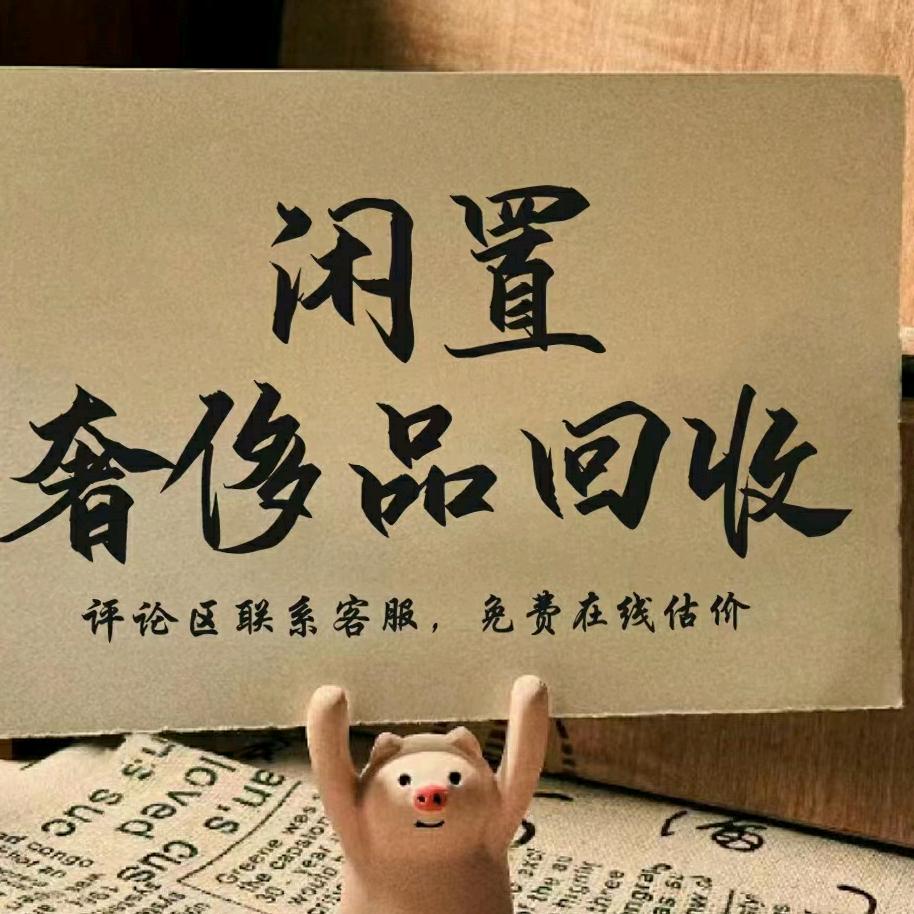 闲置
奢侈品回收
评论区联系客服，免费在线估价
Greene was